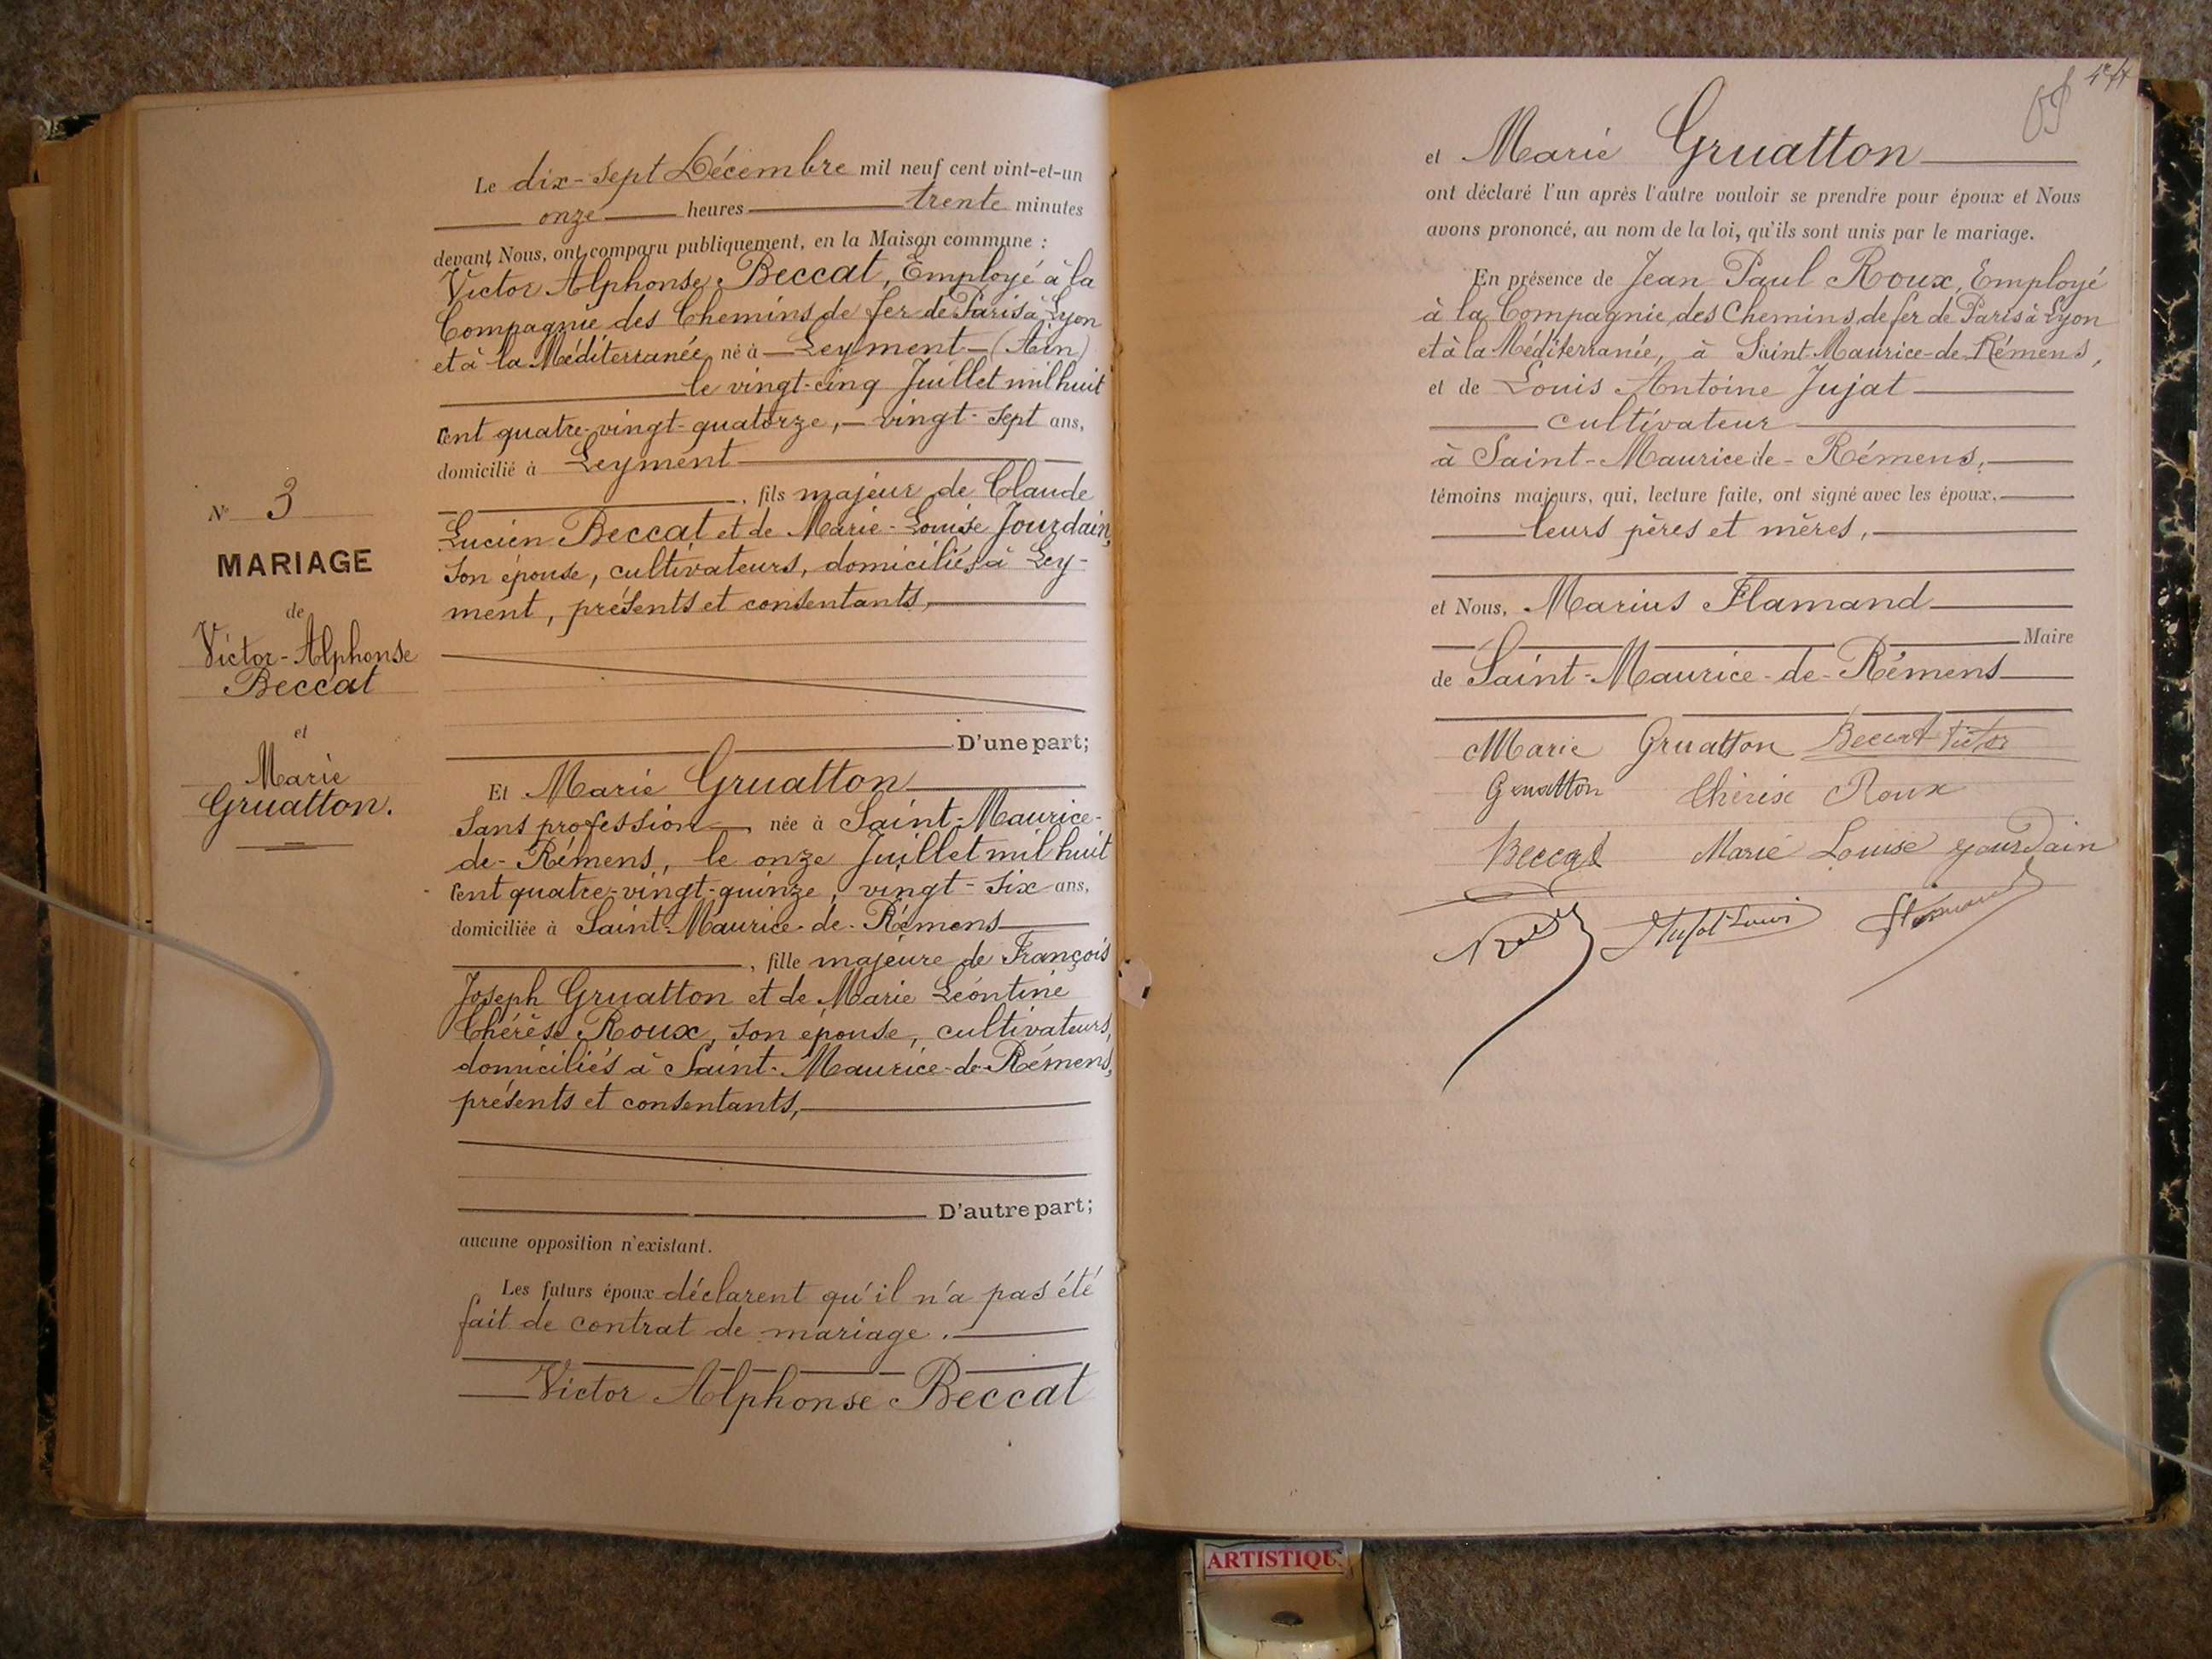 N° 3
MARIAGE
de
Victor-Alphonse
Beccat
et
Marie
Gruatton.
Le dix-sept Décembre mil neuf cent vint-et-un
onze heures trente minutes
devant Nous, ont comparu publiquement, en la Maison commune :
Victor Alphonse Beccat, Employé à la
Compagnie des Chemins de fer de Paris à Lyon
et à la Méditerranée, né à Leyment (Ain)
le vingt-cinq Juillet mil huit
cent quatre-vingt-quatorze, vingt-sept ans,
domicilié à Leyment
, fils majeur de Claude
Lucien Beccat et de Marie-Louise Jourdain,
son épouse, cultivateurs, domiciliés à Ley-
ment, présents et consentants,
D'une part;
Et Marie Gruatton
sans profession, née à Saint-Maurice-
de-Rémens, le onze Juillet mil huit
cent quatre-vingt-quinze, vingt-six ans,
domiciliée à Saint-Maurice-de-Rémens
, fille majeure de François
Joseph Gruatton et de Marie Léontine
Thérèse Roux, son épouse, cultivateurs,
domiciliés à Saint-Maurice-de-Rémens,
présents et consentants,
D'autre part;
aucune opposition n'existant.
Les futurs époux déclarent qu'il n'a pas été
fait de contrat de mariage.
Victor Alphonse Beccat
et Marie Gruatton
ont déclaré l'un après l'autre vouloir se prendre pour époux et Nous
avons prononcé, au nom de la loi, qu'ils sont unis par le mariage.
En présence de Jean Paul Roux, Employé
à la Compagnie des Chemins de fer de Paris à Lyon
et à la Méditerranée, à Saint-Maurice-de-Rémens,
et de Louis Antoine Jujat
cultivateur
à Saint-Maurice-de-Rémens,
témoins majeurs, qui, lecture faite, ont signé avec les époux,
leurs pères et mères,
et Nous, Marius Flamand
Maire
de Saint-Maurice-de-Rémens
Marie Gruatton Beccat Victor
Gruatton Thérèse Roux
Beccat Marie Louise Jourdain
Jujat Louis Flamand
ARTISTIQU